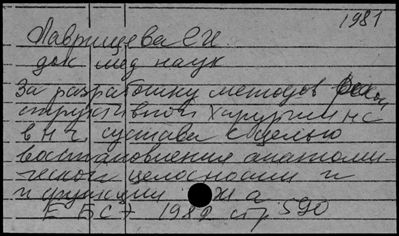 1981
Лаврищева Г.И.
док мед наук
За разработку методов рекон
структивной хирургии НС
в Н г сустава с целью
восстановления анатоми-
ческой целосности и
и функции
Е БСЭ 1982 стр 590